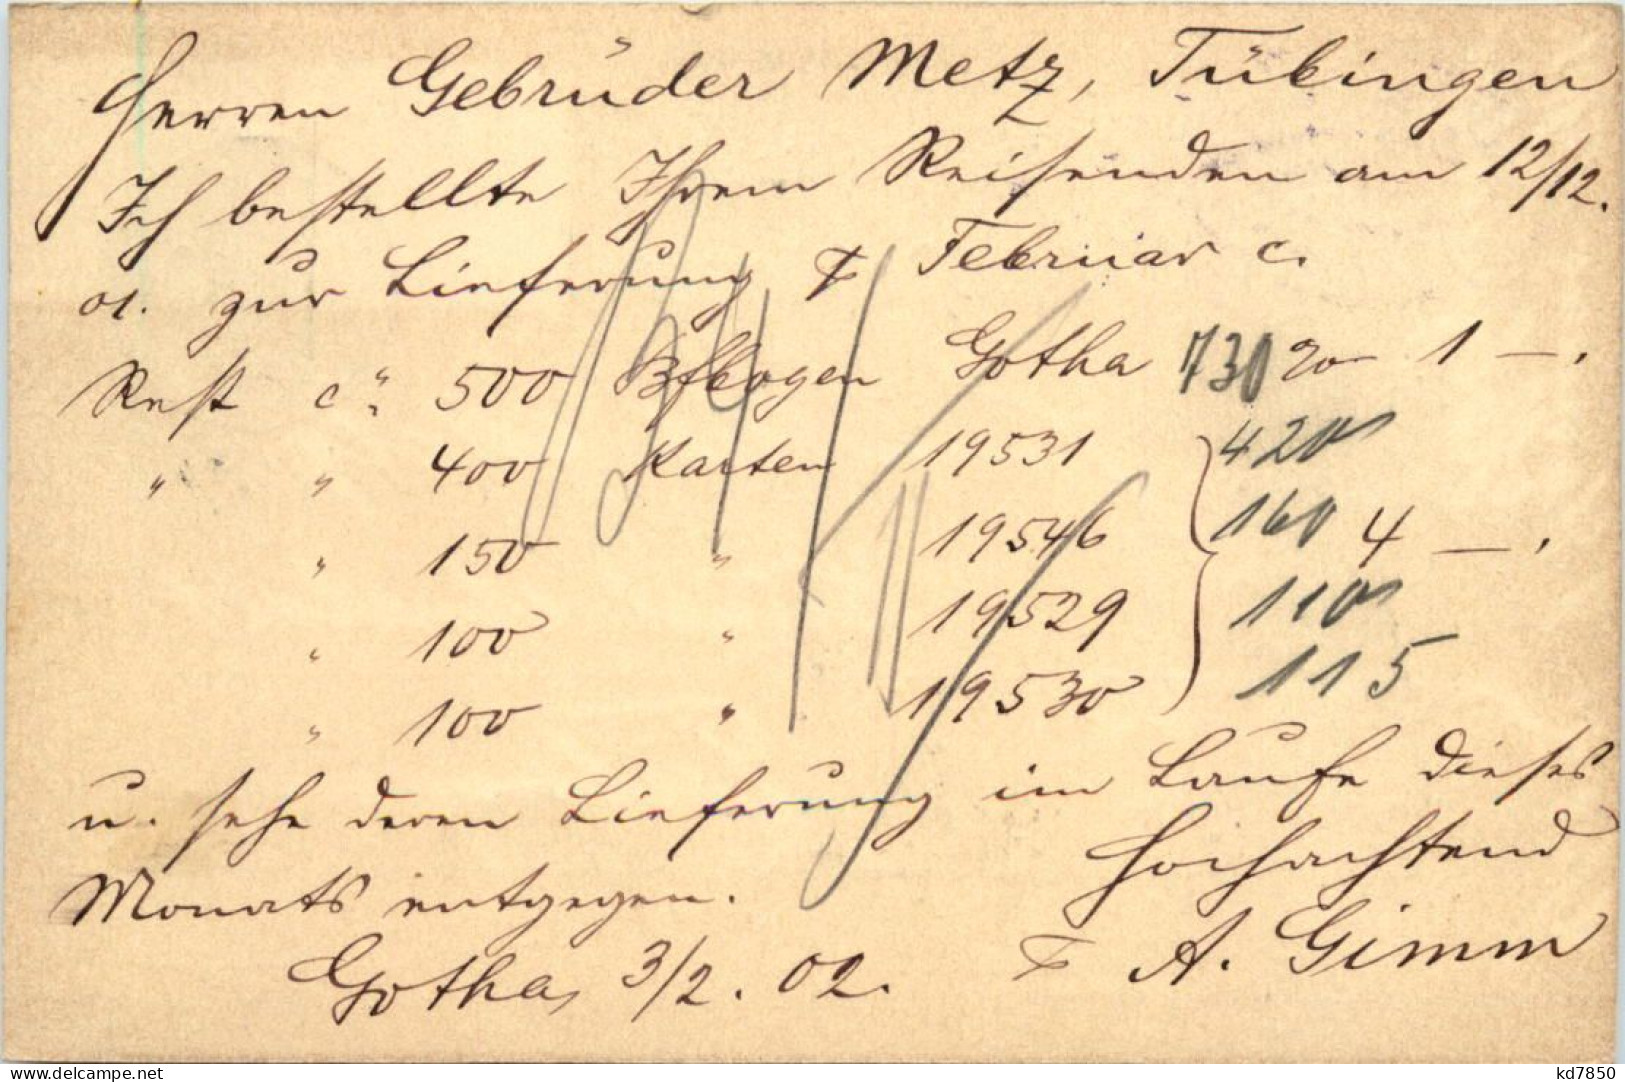 Herren Gebrüder Metz, Tübingen
Ich bestellte Ihrem Reisenden am 12/12.
01. zur Lieferung Februar c.
Rest ca 500 Bfbogen Gotha 730 20 1 —.
" " 400 Karten 19531 420
" 150 " 19546 160 4 —.
" 100 " 19529 110
" 100 " 19530 115
u. sehe deren Lieferung im Laufe dieses
Monats entgegen. Hochachtend
Gotha, 3/2. 02. A. Gimm
delcampe.net
kd7850